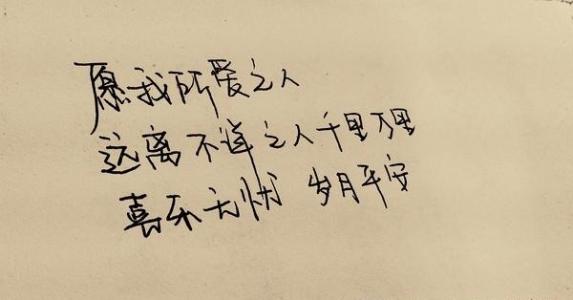 愿我所爱之人
远离不详之人千里万里
喜乐无忧 岁月平安